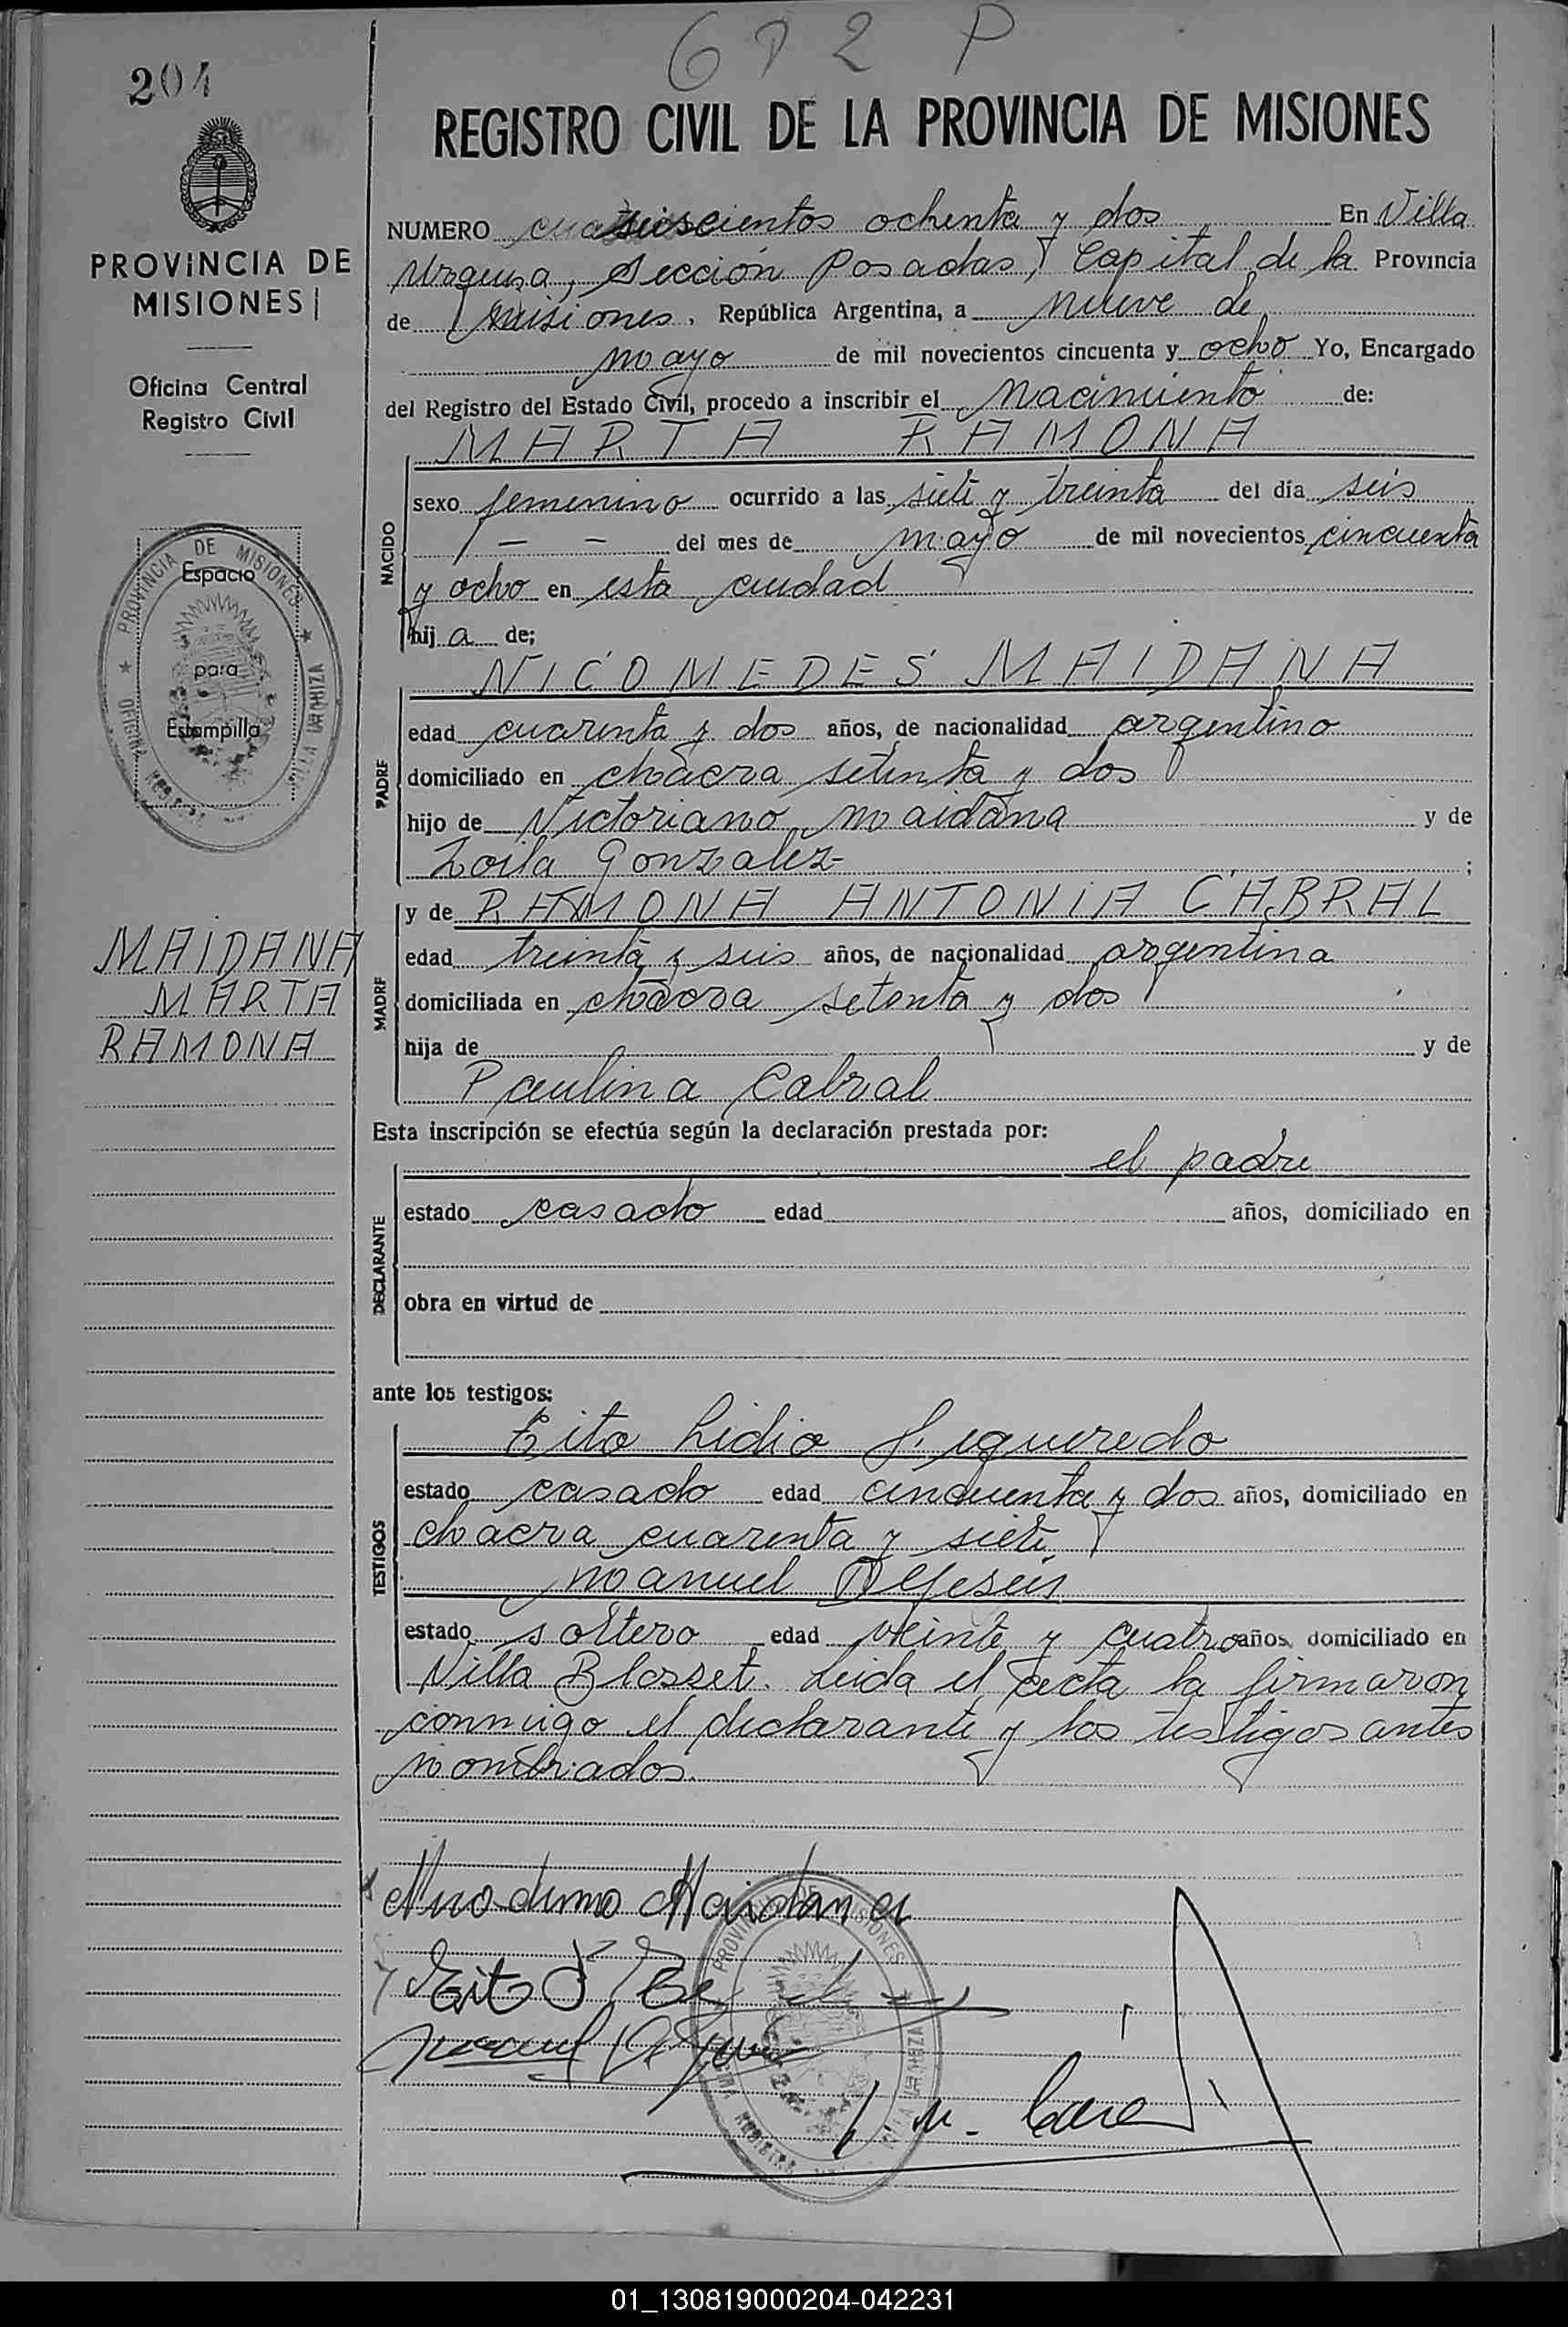 204
682 P
REGISTRO CIVIL DE LA PROVINCIA DE MISIONES
PROVINCIA DE
MISIONES
Oficina Central
Registro Civil
PROVINCIA DE MISIONES
Espacio
para
Estampilla
MAIDANA
MARTA
RAMONA
NUMERO seiscientos ochenta y dos En Villa
Urquiza, Sección Posadas, Capital de la Provincia
de Misiones. República Argentina, a nueve de
mayo de mil novecientos cincuenta y ocho Yo, Encargado
del Registro del Estado Civil, procedo a inscribir el Nacimiento de:
MARTA RAMONA
NACIDO
sexo femenino ocurrido a las siete y treinta del día seis
— — del mes de mayo de mil novecientos cincuenta
y ocho en esta ciudad
hij a de;
NICOMEDES MAIDANA
PADRE
edad cuarenta y dos años, de nacionalidad argentino
domiciliado en chacra setenta y dos
hijo de Victoriano Maidana y de
Zoila Gonzalez- ;
y de RAMONA ANTONIA CABRAL
MADRE
edad treinta y seis años, de nacionalidad argentina
domiciliada en chacra setenta y dos
hija de y de
Paulina Cabral
Esta inscripción se efectúa según la declaración prestada por:
el padre
DECLARANTE
estado casado edad años, domiciliado en
obra en virtud de
ante los testigos:
Tito Lidio Figueredo
TESTIGOS
estado casado edad cincuenta y dos años, domiciliado en
chacra cuarenta y siete
Manuel DeJesus
estado soltero edad veinte y cuatro años, domiciliado en
Villa Blosset. Leida el acta la firmaron
conmigo el declarante y los testigos antes
nombrados.
Maidana
Tito
PROVINCIA DE MISIONES
01_130819000204-042231